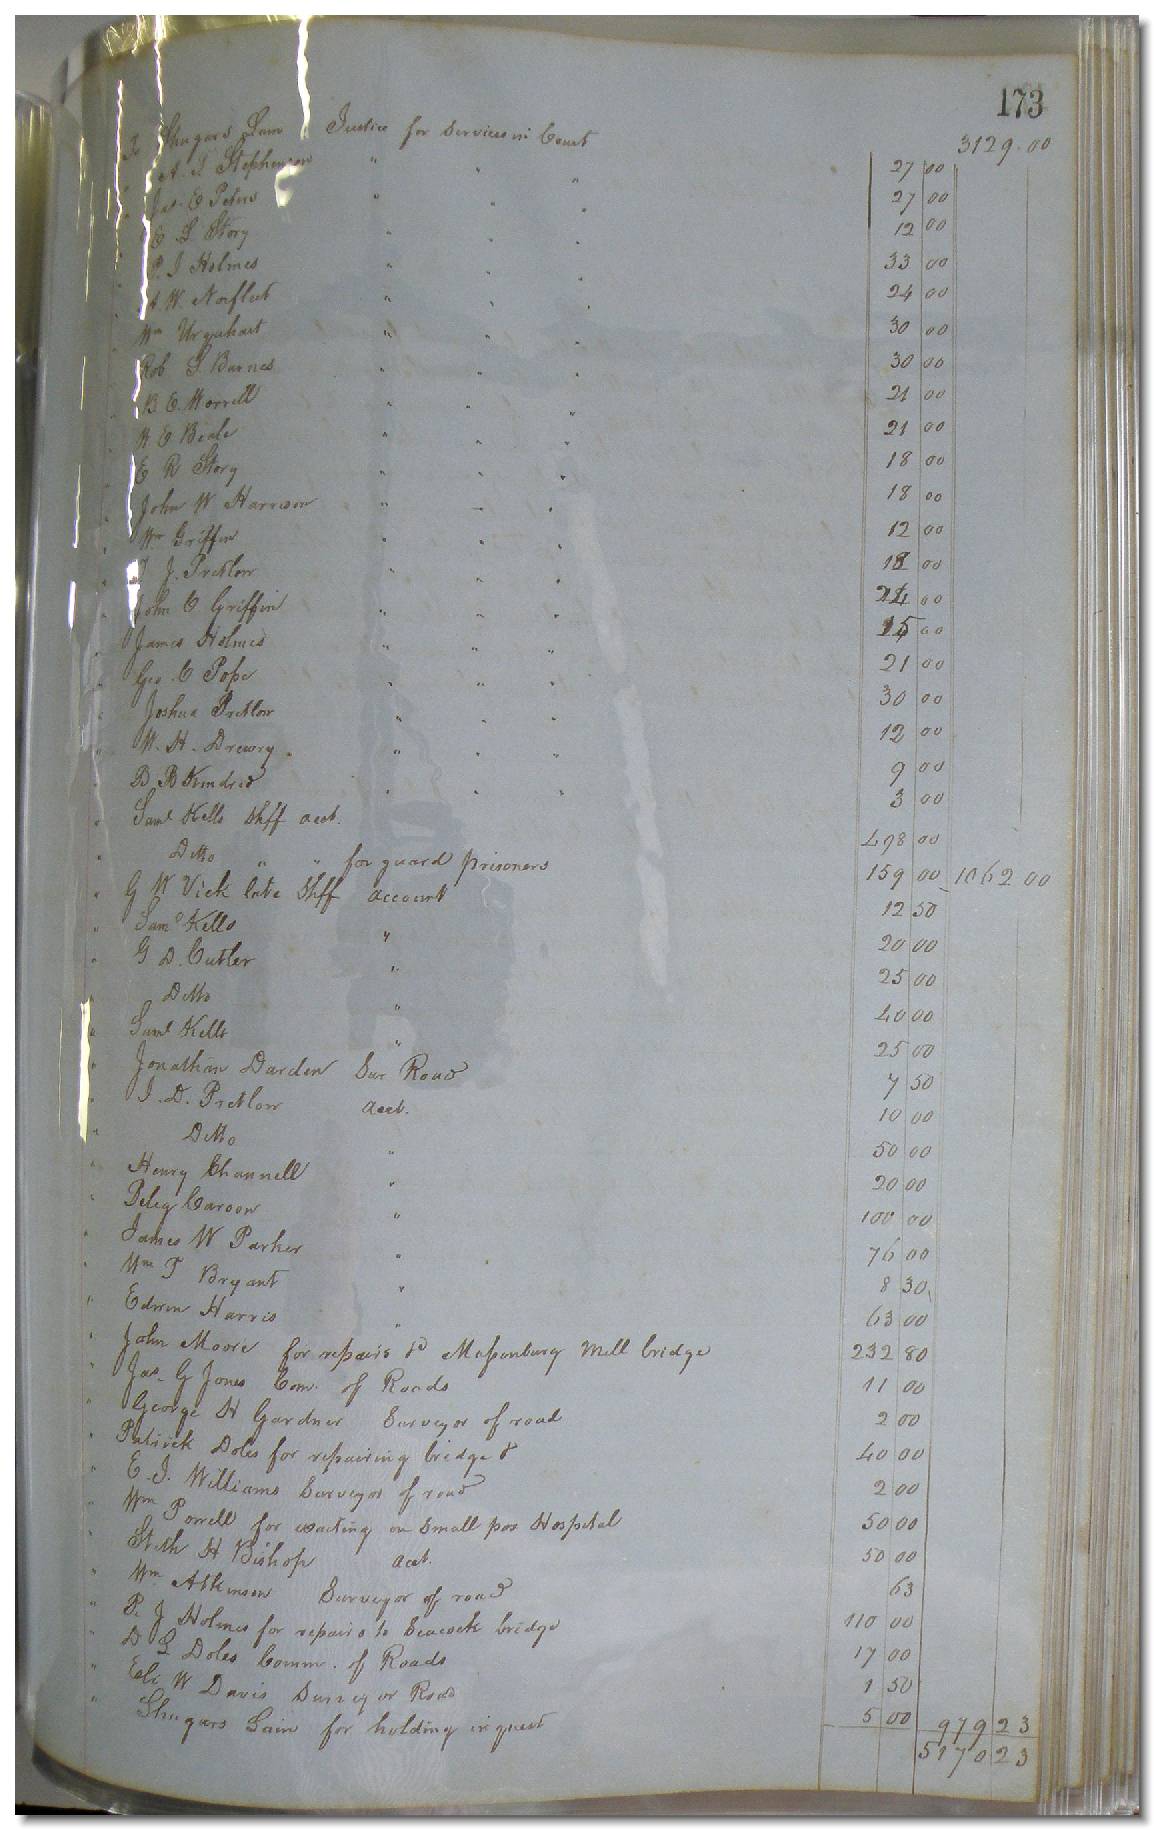 173
3129.00
To Shugars Lain Justice for Services in Court 27 00
" A. S. Stephenson " " " 27 00
" Jas. E Peters " " " 12 00
" E S Story " " " 33 00
" P. J Holmes " " " 24 00
" A W. Norfleet " " " 30 00
" Wm Urquhart " " " 30 00
" Rob S. Barnes " " " 21 00
" B E Worrell " " " 21 00
" R E Beale " " " 18 00
" E R Story " " " 18 00
" John W Harrison " " " 12 00
" Wm Griffin " " " 18 00
" J. Pretlow " " " 24 00
" John C Griffin " " " 15 00
" James Holmes " " " 21 00
" Geo. C Pope " " " 30 00
" Joshua Pretlow " " " 12 00
" W. H. Drewry " " " 9 00
" D. B Kindred " " " 3 00
" Saml Kello Shff acct. 498 00
" Ditto " " for guard prisoners 159 00 1062 00
" G W Vick late Shff account 12 50
" Saml Kello " 20 00
" G D. Cutler " 25 00
" Ditto " 40 00
" Saml Kello " 25 00
" Jonathan Darden Sur Road 7 50
" J. D. Pretlow acct. 10 00
" Ditto " 50 00
" Henry Channell " 20 00
" Peleg Carson " 100 00
" James W Parker " 76 00
" Wm T Bryant " 8 30
" Edwin Harris " 63 00
" John Moore for repairs to Massenburg Mill bridge 232 80
" Jas. G Jones Com. of Roads 11 00
" George H Gardner Surveyor of road 2 00
" Patrick Doles for repairing bridge 40 00
" E. J. Williams Surveyor of road 2 00
" Wm Powell for waiting on Small pox Hospital 50 00
" Stith H Bishop acct. 50 00
" Wm Atkinson Surveyor of road 63
" P. J Holmes for repairs to Seacock bridge 110 00
" D S Doles Comm. of Roads 17 00
" Eli W Davis Surveyor Road 1 50
" Shugars Lain for holding inquest 5 00 979 23
5170 23